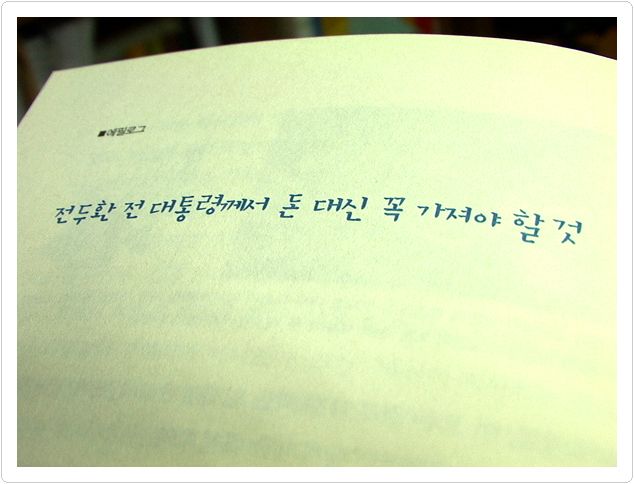 ■에필로그
전두환 전 대통령께서 돈 대신 꼭 가져야 할 것